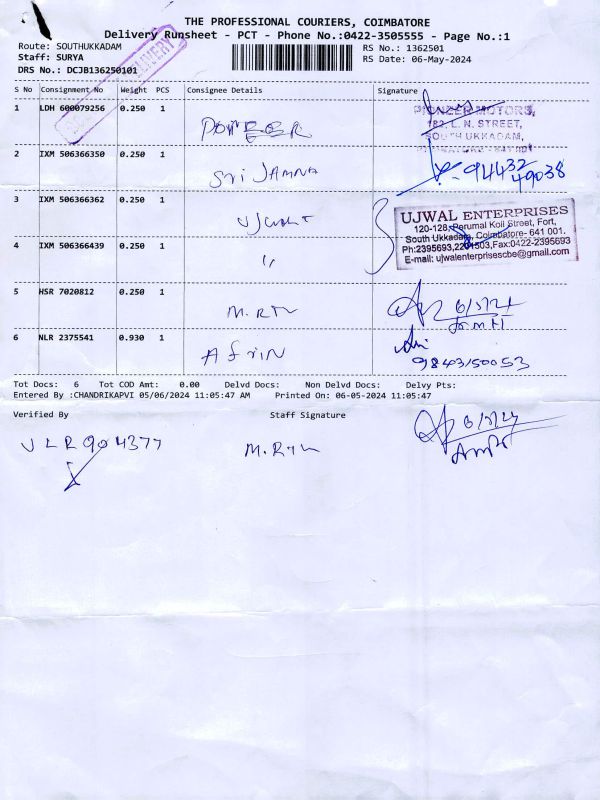 THE PROFESSIONAL COURIERS, COIMBATORE
Delivery Runsheet - PCT - Phone No.:0422-3505555 - Page No.:1
Route: SOUTHUKKADAM
RS No.: 1362501
Staff: SURYA
RS Date: 06-May-2024
DRS No.: DCJB136250101
DELIVERY
S No Consignment No Weight PCS Consignee Details Signature
1 LDH 600079256 0.250 1
PIONEER MOTORS,
182, L. N. STREET,
SOUTH UKKADAM,
2 IXM 506366350 0.250 1 Sri JAMNA
94432
49038
3 IXM 506366362 0.250 1
UJWAL ENTERPRISES
120-128, Perumal Koil Street, Fort,
South Ukkadam, Coimbatore- 641 001.
Ph:2395693,2201503,Fax:0422-2395693
E-mail: ujwalenterprisescbe@gmail.com
4 IXM 506366439 0.250 1 "
5 HSR 7020812 0.250 1 M.RTN
6 NLR 2375541 0.930 1 Afrin
9843150053
Tot Docs: 6 Tot COD Amt: 0.00 Delvd Docs: Non Delvd Docs: Delvy Pts:
Entered By :CHANDRIKAPVI 05/06/2024 11:05:47 AM Printed On: 06-05-2024 11:05:47
Verified By Staff Signature
VLR904377 M.RTN